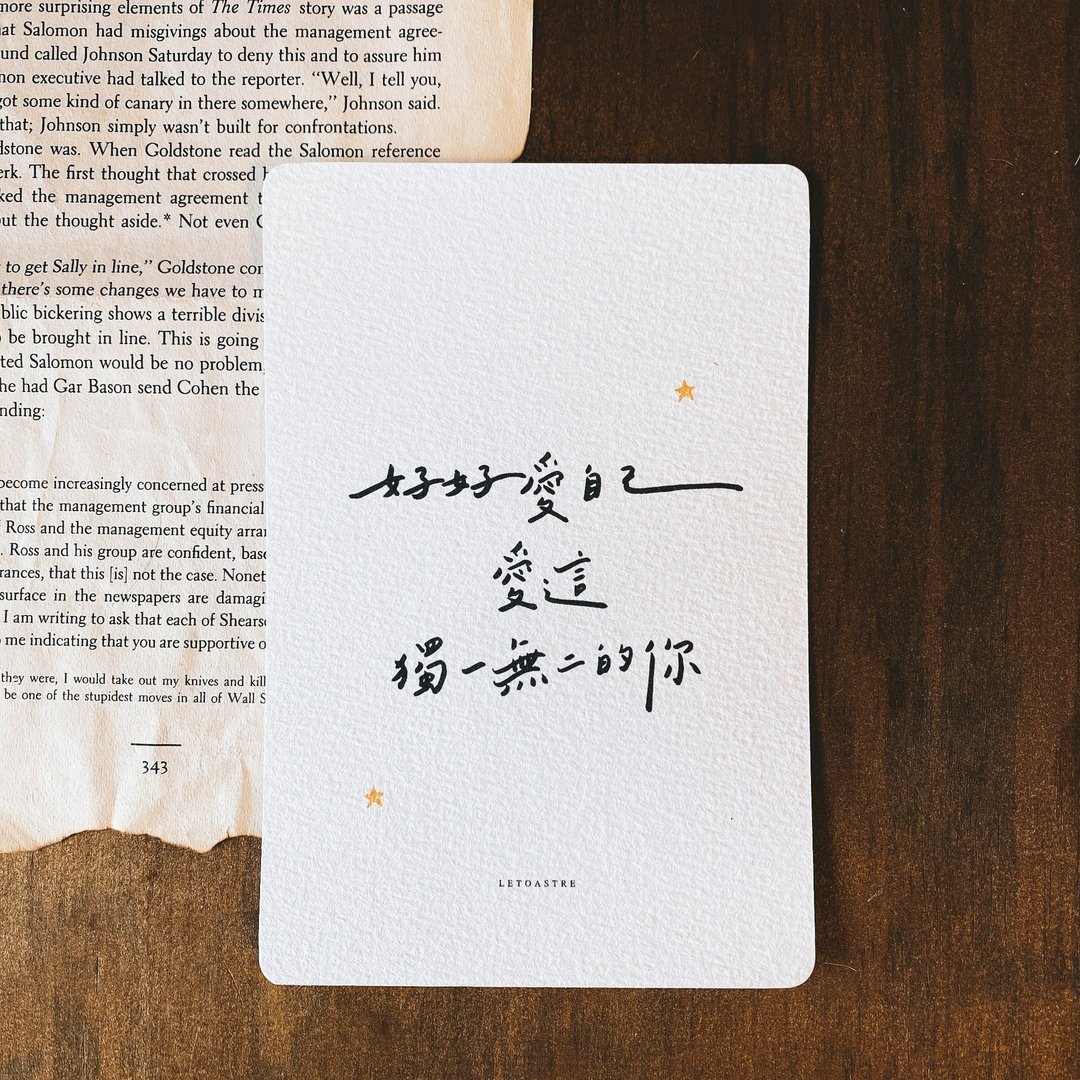 more surprising elements of The Times story was a passage
at Salomon had misgivings about the management agree-
und called Johnson Saturday to deny this and to assure him
non executive had talked to the reporter. “Well, I tell you,
got some kind of canary in there somewhere,” Johnson said.
that; Johnson simply wasn’t built for confrontations.
dstone was. When Goldstone read the Salomon reference
erk. The first thought that crossed
ked the management agreement
out the thought aside.* Not even
to get Sally in line,” Goldstone con
there’s some changes we have to m
blic bickering shows a terrible divis
o be brought in line. This is going
ted Salomon would be no problem,
he had Gar Bason send Cohen the
nding:
become increasingly concerned at press
that the management group’s financial
Ross and the management equity arran
. Ross and his group are confident, base
rances, that this [is] not the case. Nonet
surface in the newspapers are damagi
I am writing to ask that each of Shearso
o me indicating that you are supportive o
they were, I would take out my knives and kill
be one of the stupidest moves in all of Wall S
343
好好愛自己
愛這
獨一無二的你
LETOASTRE